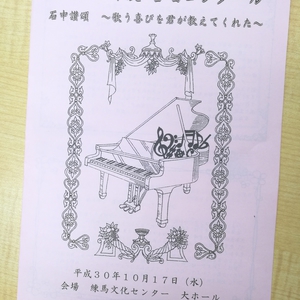 石中讃頌　～歌う喜びを君が教えてくれた～
平成３０年１０月１７日（水）
会場　練馬文化センター　大ホール